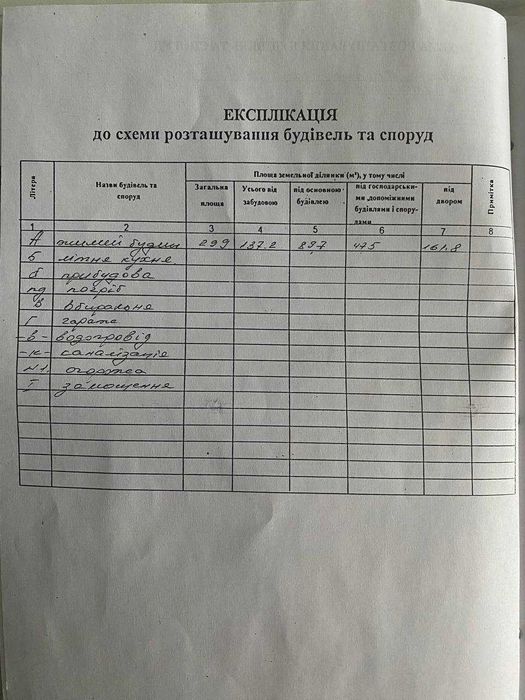 ЕКСПЛІКАЦІЯ
до схеми розташування будівель та споруд
Літера
Назви будівель та споруд
Площа земельної ділянки (м²), у тому числі
Загальна площа
Усього від забудовою
під основною будівлею
під господарськи- ми ,допоміжними будівлями і спору- дами
під двором
Примітка
1 2 3 4 5 6 7 8
А жилий будин 299 137.2 89.7 47.5 161.8
Б літня кухня
б прибудова
пд погріб
В вбиральня
Г гараж
-в- водопровід
-к- каналізація
№1 огорожа
I замощення